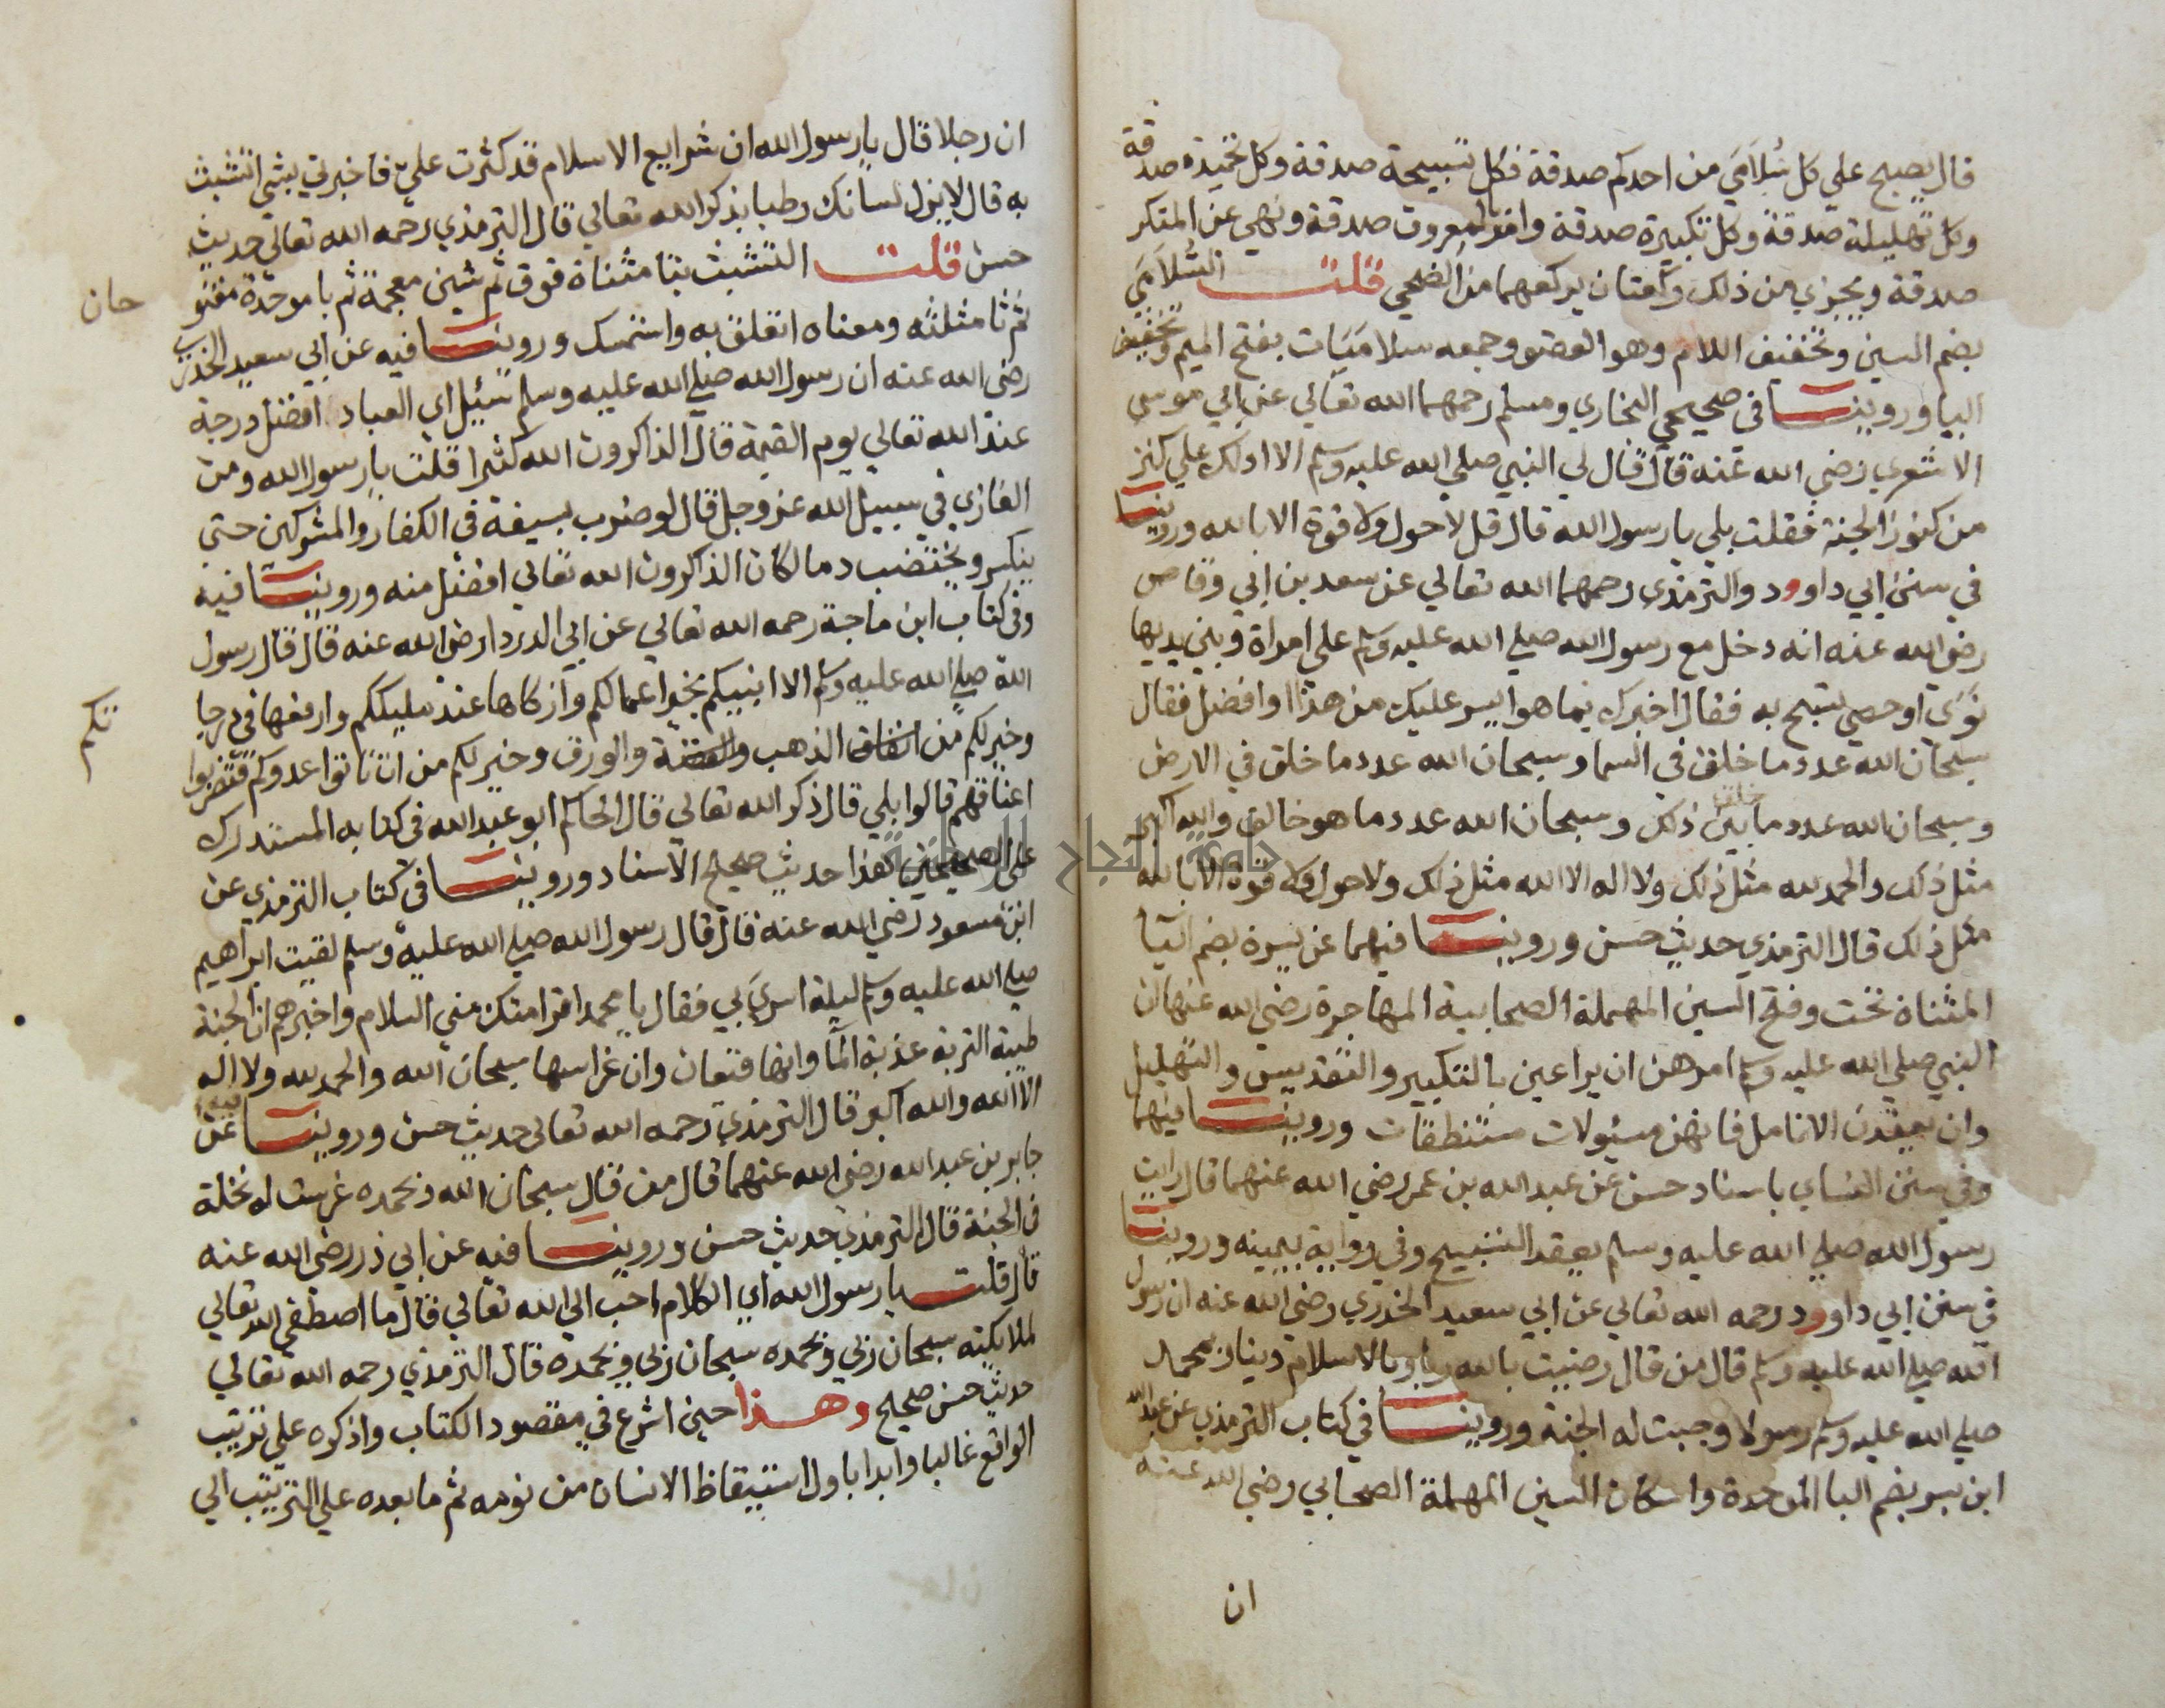 قال يصبح علي كل سُلامَي من احدكم صدقة فكل تسبيحة صدقة وكل تحميدة صدقة
وكل تهليلة صدقة وكل تكبيرة صدقة وامر المعروف صدقة ونهي عن المنكر
صدقة ويجزي من ذلك ركعتان يركعهما من الضحي قلت السُّلامَي
بضم السين وتخفيف اللام وهو العضو وجمعه سلاميات بفتح الميم وتخفيف
اليا وروينا في صحيحي البخاري ومسلم رحمهما الله تعالي عن ابي موسي
الاشعري رضي الله عنه قال قال لي النبي صلي الله عليه وسلم الا ادلك علي كنز
من كنوز الجنة فقلت بلي يا رسول الله قال قل لا حول ولا قوة الا بالله وروينا
في سنن ابي داوود والترمذي رحمهما الله تعالي عن سعد بن ابي وقاص
رضي الله عنه انه دخل مع رسول الله صلي الله عليه وسلم علي امراة وبين يديها
نوَي او حصي تسبح به فقال اخبرك بما هو ايسر عليك من هذا او افضل فقال
سبحان الله عدد ما خلق في السما وسبحان الله عدد ما خلق في الارض
وسبحان الله عدد ما بين ذلك وسبحان الله عدد ما هو خالق والله اكبر
مثل ذلك والحمد لله مثل ذلك ولا اله الا الله مثل ذلك ولا حول ولا قوة الا بالله
مثل ذلك قال الترمذي حديث حسن وروينا فيهما عن يسرة بضم اليا
المثناة تحت وفتح السين المهملة الصحابية المهاجرة رضي الله عنها ان
النبي صلي الله عليه وسلم امرهن ان يراعين بالتكبير والتقديس والتهليل
وان يعقدن الانامل فانهن مسئولات مستنطقات وروينا فيهما
وفي سنن النساي باسناد حسن عن عبد الله بن عمر رضي الله عنهما قال رايت
رسول الله صلي الله عليه وسلم يعقد التسبيح وفي رواية بيمينه وروينا
في سنن ابي داوود رحمه الله تعالي عن ابي سعيد الخدري رضي الله عنه ان رسول
الله صلي الله عليه وسلم قال من قال رضيت بالله ربا وبالاسلام دينا وبمحمد
صلي الله عليه وسلم رسولا وجبت له الجنة وروينا في كتاب الترمذي عن عبد الله
ابن بسر بضم البا الموحدة واسكان السين المهملة الصحابي رضي الله عنه
ان
ان رجلا قال يا رسول الله ان شرايع الاسلام قد كثرت علي فاخبرني بشي اتشبث
به قال لا يزل لسانك رطبا بذكر الله تعالي قال الترمذي رحمه الله تعالي حديث
حسن قلت التشبث بتا مثناة فوق ثم شين معجمة ثم با موحدة مفتو
ثم ثا مثلثه ومعناه اتعلق به واستمسك وروينا فيه عن ابي سعيد الخدري
رضي الله عنه ان رسول الله صلي الله عليه وسلم سئيل اي العباد افضل درجة
عند الله تعالي يوم القيمة قال الذاكرون الله كثيرا قلت يا رسول الله ومن
الغازي في سبيل الله عز وجل قال لو ضرب بسيفه في الكفار والمشركين حتي
ينكسر ويختضب دما لكان الذاكرون الله تعالي افضل منه وروينا فيه
وفي كتاب ابن ماجة رحمه الله تعالي عن ابي الدردا رضي الله عنه قال قال رسول
الله صلي الله عليه وسلم الا انبيكم بخير اعمالكم وازكاها عند مليككم وارفعها في درجا
تكم
وخير لكم من انفاق الذهب والفضة والورق وخير لكم من ان تاتوا عدوكم فتضربوا
اعناقهم قالوا بلي قال ذكر الله تعالي قال الحاكم ابو عبد الله في كتابه المستدرك
علي الصحيحين هذا حديث صحيح الاسناد وروينا في كتاب الترمذي عن
ابن مسعود رضي الله عنه قال قال رسول الله صلي الله عليه وسلم لقيت ابراهيم
صلي الله عليه وسلم ليلة اسري بي فقال يا محمد اقرا امتك مني السلام واخبرهم ان الجنة
طيبة التربة عذبة الما وانها قيعان وان غراسها سبحان الله والحمد لله ولا اله
الا الله والله اكبر قال الترمذي رحمه الله تعالي حديث حسن وروينا فيه عن
جابر بن عبد الله رضي الله عنهما قال من قال سبحان الله وبحمده غرست له نخلة
في الجنة قال الترمذي حديث حسن وروينا فيه عن ابي ذر رضي الله عنه
قال قلت يا رسول الله اي الكلام احب الي الله تعالي قال ما اصطفي الله تعالي
لملايكته سبحان ربي وبحمده سبحان ربي وبحمده قال الترمذي رحمه الله تعالي
حديث حسن صحيح وهذا حين اشرع في مقصود الكتاب واذكره علي ترتيب
الواقع غالبا وابدا باول استيقاظ الانسان من نومه ثم ما بعده علي الترتيب الي